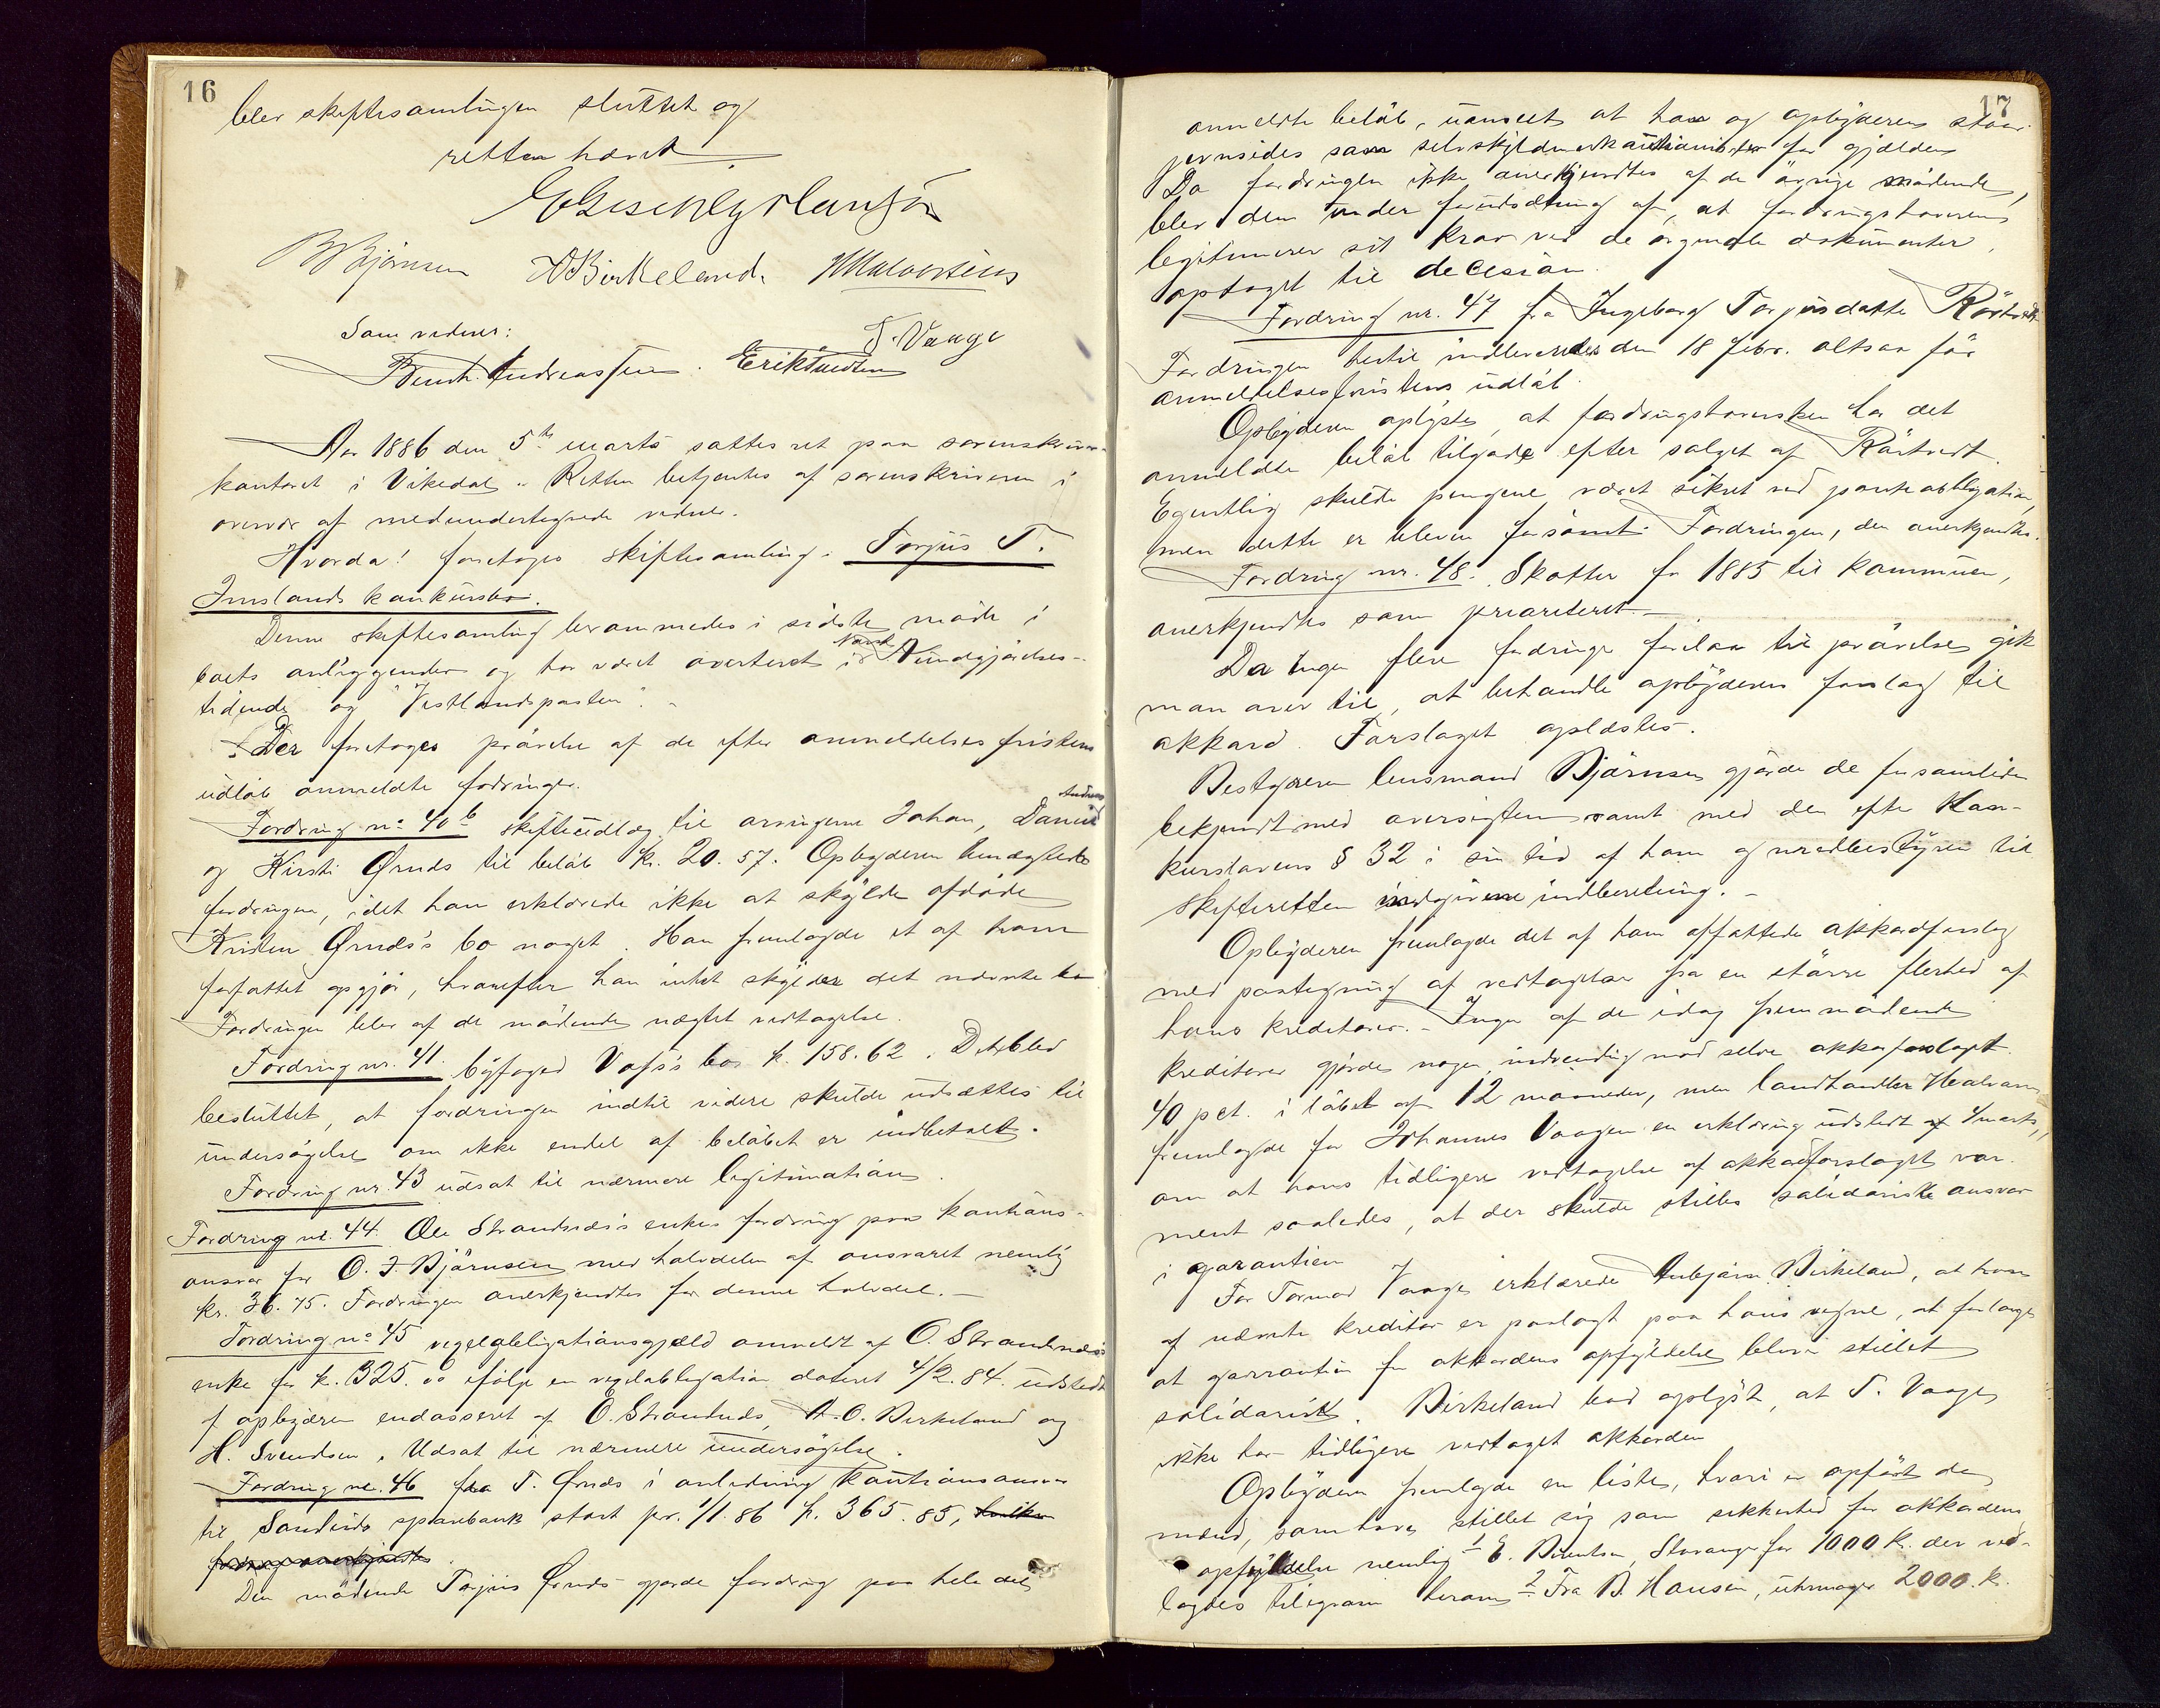 16
blev skiftesamlingen sluttet og
retten hævet
B Bjørnsen A Birkeland. H Halvorsen
Som vidner: T. Vaage
Bernh. Andreassen. Erik Knudsen
Aar 1886 den 5te marts sattes ret paa sorenskriver-
kontoret i Vikedal. Retten betjentes af sorenskriveren i
overvær af medundertegnede vidner.
Hvorda! foretoges skiftesamling i Torjus T.
Imslands konkursbo.
Denne skiftesamling berammedes i sidste møde i
boets anliggender og har været averteret i Norsk Kundgjørelses-
tidende og "Vestlandsposten".
Der foretoges prøvelse af de efter anmeldelsesfristens
udløb anmeldte fordringer.
Fordring no 40b skifteudlæg til arvingerne Johan, Daniel Andreas
og Kirsti Ørnds til beløb kr. 20.57. Opbyderen benægtede
fordringen, idet han erklærede ikke at skylde afdøde
Kristen Ørnds's bo noget. Han fremlagde et af ham
forfattet opgjør, hvorefter han intet skylder det nævnte bo
Fordringen blev af de mødende nægtet vedtagelse.
Fordring nr. 41. byfoged Vogs's bo k. 158.62. Det blev
besluttet, at fordringen indtil videre skulde udsættes til
undersøgelse om ikke endel af beløbet er indbetalt.
Fordring nr. 43 udsat til nærmere legitimation.
Fordring nr. 44. Ole Strandnæs's enkes fordring paa kautions-
ansvar for O. J. Bjørnsen med halvdelen af ansvaret nemlig
kr. 36.75. Fordringen anerkjendtes for denne halvdel. –
Fordring no 45 vexelobligationsgjæld anmeldt af O. Strandnæs's
enke for k. 325.00 ifølge en vexelobligation dateret 4/2.84. udstedt
af opbyderen endosseret af O. Strandnæs, A. O. Birkeland og
H. Svendsen. Udsat til nærmere undersøgelse.
Fordring nr. 46 fra T. Ørnds i anledning kautionsansvar
til Sandeids sparebank stort pr. 1/1.86 k. 365.85, hvilken
fordring anerkjendtes.
Den mødende Torjus Ørnds gjorde fordring paa hele det
17
anmeldte beløb, uanseet at han og opbyderen staar
jevnsides som selvskyldnerkautionister for gjælden
Da fordringen ikke anerkjendtes af de øvrige mødende,
blev den under forudsætning af, at fordringshaveren
legitimerer sit krav ved de orginale dokumenter,
optaget til decision.
Fordring nr. 47 fra Ingeborg Torjusdatter Rørtvedt
Fordringen hertil indleveredes den 18 febr. altsaa før
anmeldelsesfristens udløb.
Opbyderen oplyste, at fordringshaversken har det
anmeldte beløb tilgode efter salget af Rørtvedt.
Egentlig skulde pengene været sikret ved panteobligation,
men dette er bleven forsømt. Fordringen, der anerkjendtes.
Fordring nr. 48. Skatter for 1885 til kommunen,
anerkjendtes som prioriteret. –
Da ingen flere fordringer forelaa til prøvelse gik
man over til, at behandle opbyderens forslag til
akkord. Forslaget oplæstes.
Bestyreren lensmand Bjørnsen gjorde de forsamlede
bekjendt med oversigten samt med den efter Kon-
kurslovens § 32 i sin tid af ham og medbestyrer til
Skifteretten indgivne indberetning. –
Opbyderen fremlagde det af ham affattede akkordforslag
med paategning af vedtagelse fra en større flerhed af
hans kreditorer. – Ingen af de idag fremmødende
kreditorer gjorde nogen indvending mod selve akkordforslaget
40 pct. i løbet af 12 maaneder, men landhandler Halvorsen
fremlagde for Johannes Vaagen en erklæring udstedt af 4 marts,
om at hans tidligere vedtagelse af akkordforslaget var
ment saaledes, at der skulde stilles solidarisk ansvar
i garantien
For Tormod Vaage erklærede Anbjørn Birkeland, at han
af nævnte kreditor er paalagt paa hans vegne, at forlange
at garrantien for akkordens opfyldelse bliver stillet
solidarisk. Birkeland bad oplyst, at T. Vaage
ikke har tidligere vedtaget akkorden
Opbyderen fremlagde en liste, hvori er opført de
mænd, som have stillet sig som sikkerhed for akkordens
opfyldelse nemlig 1 E. Berentsen, Stavanger for 1000 k. der ved-
lagdes telegram herom 2 Fra B. Hansen, uhrmager 2000. k.